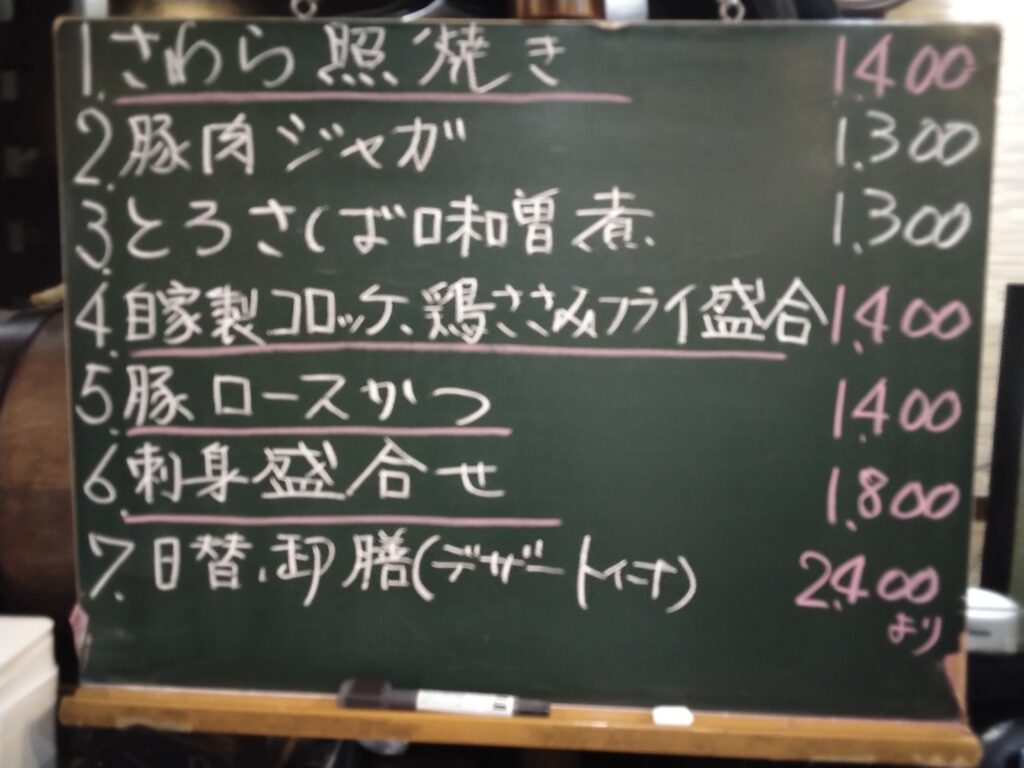 1.さわら照焼き 1.400
2.豚肉ジャガ 1.300
3.とろさば味噌煮 1.300
4.自家製コロッケ、鶏ささみフライ盛合 1.400
5.豚ロースかつ 1.400
6.刺身盛合せ 1.800
7.日替御膳(デザート付) 2.400
より